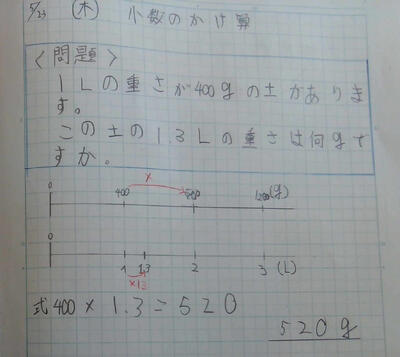 5/23 (木) 小数のかけ算
〈問題〉
1Lの重さが400gの土がありま
す。
この土の1.3Lの重さは何gで
すか。
×
0 400 1200 (g)
0
1 1.3 2 3 (L)
×1.3
式 400×1.3=520
520g